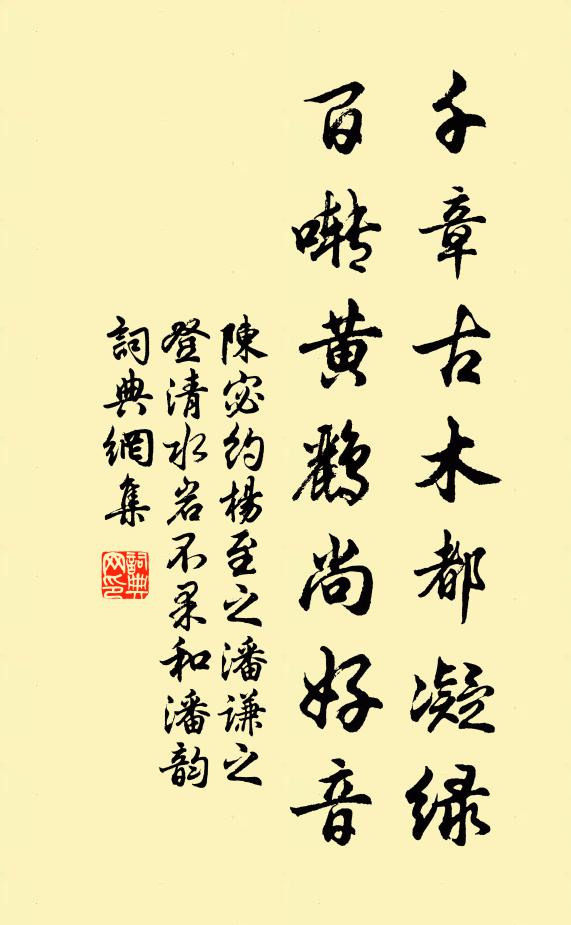 千章古木都凝绿
百啭黄鹂尚好音
陳宓約楊至之潘謙之
登清水岩不果和潘韵
詞典網集
詞典
网印